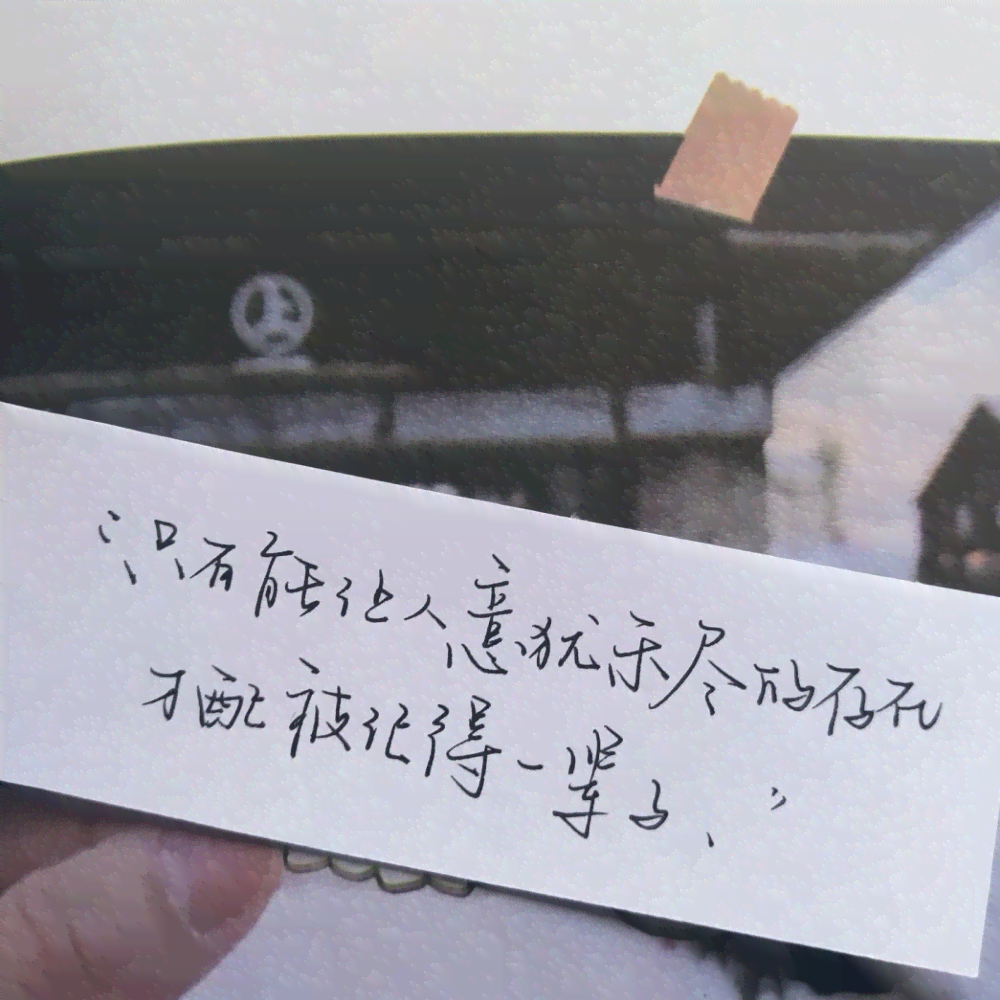 “只有能让人意犹未尽的存在
才配被记得一辈子、”